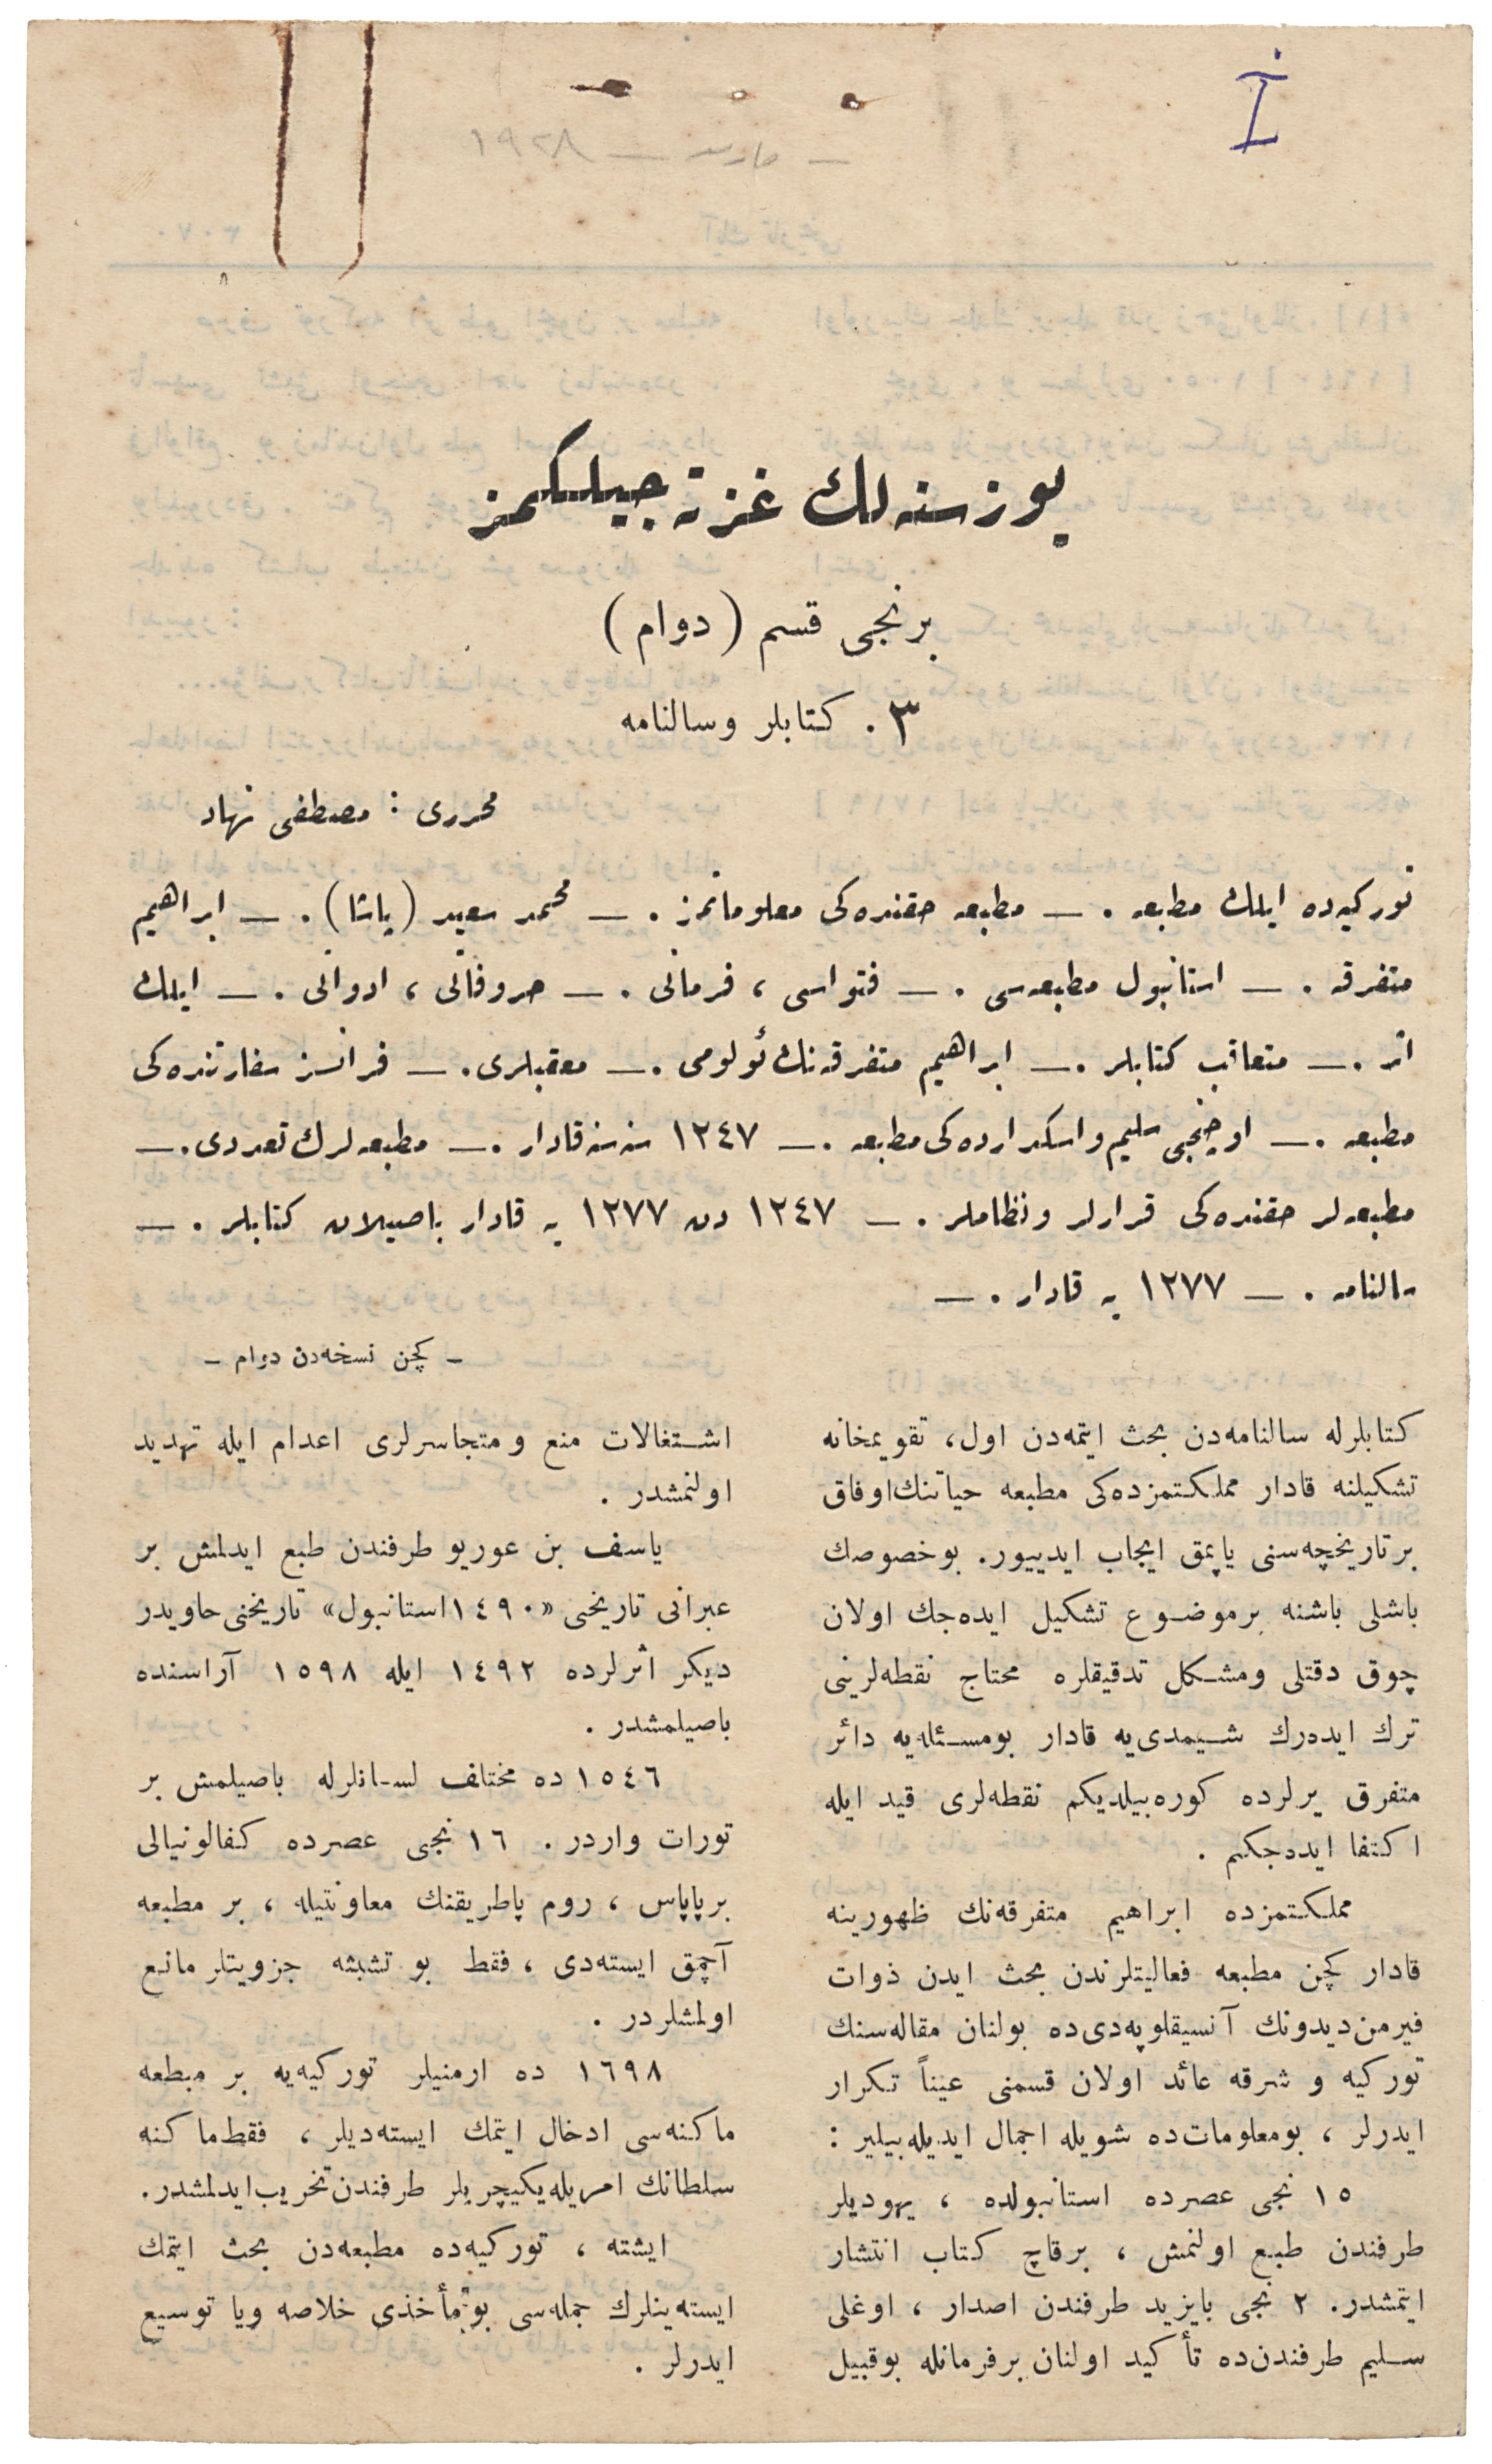 I
یوز سنه‌لك غزته‌جیلكمز
برنجی قسم ( دوام )
٣ . كتابلر و سالنامه
محرری : مصطفی نهاد
توركیه‌ده ایلك مطبعه . — مطبعه حقنده‌كی معلوماتمز . — محمد سعید (پاشا) . — ابراهیم
متفرقه . — استانبول مطبعه‌سی . — فتواسی ، فرمانی . — حروفاتی ، ادواتی . — ایلك
اثر . — متعاقب كتابلر . — ابراهیم متفرقه‌نك ئولومی . — معقبلری . — فرانسز سفارتنده‌كی
مطبعه . — اوچنجی سلیم و اسكدارده‌كی مطبعه . — ١٢٤٧ سنه‌سنه قادار . — مطبعه‌لرك تعددی . —
مطبعه‌لر حقنده‌كی قرارلر و نظاملر . — ١٢٤٧ دن ١٢٧٧ یه قادار باصیلان كتابلر . —
سالنامه . — ١٢٧٧ یه قادار . —
– كچن نسخه‌دن دوام –
كتابلرله سالنامه‌دن بحث ایتمه‌دن اول، تقویمخانه
تشكیلنه قادار مملكتمزده‌كی مطبعه حیاتنك اوفاق
بر تاریخچه‌سنی یاپمق ایجاب ایدییور. بو خصوصك
باشلی باشنه بر موضوع تشكیل ایده‌جك اولان
چوق دقتلی و مشكل تدقیقلره محتاج نقطه‌لرینی
ترك ایده‌رك شیمدی‌یه قادار بو مسئله‌یه دائر
متفرق یرلرده كوره‌بیلدیكم نقطه‌لری قید ایله
اكتفا ایده‌جكم .
مملكتمزده ابراهیم متفرقه‌نك ظهورینه
قادار كچن مطبعه فعالیتلرندن بحث ایدن ذوات
فیرمن دیدونك آنسیقلوپه‌دی‌ده بولنان مقاله‌سنك
توركیه و شرقه عائد اولان قسمنی عیناً تكرار
ایدرلر ، بو معلومات‌ده شویله اجمال ایدیله‌بیلیر :
١٥ نجی عصرده استانبولده ، یهودیلر
طرفندن طبع اولنمش ، برقاچ كتاب انتشار
ایتمشدر. ٢ نجی بایزید طرفندن اصدار ، اوغلی
سلیم طرفندن‌ده تأكید اولنان بر فرمانله بوقبیل
اشتغالات منع و متجاسرلری اعدام ایله تهدید
اولنمشدر .
یاسف بن عوریو طرفندن طبع ایدلمش بر
عبرانی تاریخی «١٤٩٠ استانبول» تاریخنی حاویدر
دیكر اثرلرده ١٤٩٢ ایله ١٥٩٨ آراسنده
باصیلمشدر .
١٥٤٦ ده مختلف لسانلرله باصیلمش بر
تورات واردر . ١٦ نجی عصرده كفالونیالی
بر پاپاس ، روم پاطریقنك معاونتیله ، بر مطبعه
آچمق ایسته‌دی ، فقط بو تشبثه جزویتلر مانع
اولمشلردر .
١٦٩٨ ده ارمنیلر توركیه‌یه بر مبطعه
ماكنه‌سی ادخال ایتمك ایسته‌دیلر ، فقط ماكنه
سلطانك امریله یكیچریلر طرفندن تخریب ایدلمشدر.
ایشته ، توركیه‌ده مطبعه‌دن بحث ایتمك
ایسته‌ینلرك جمله‌سی بو مأخذی خلاصه ویا توسیع
ایدرلر .